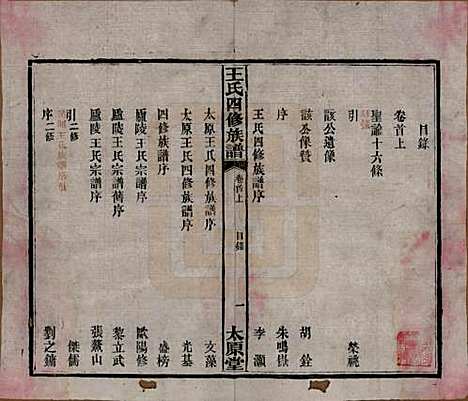 目錄
卷首上
聖諭十六條
引 榮祧
諺公遺像
諺公像贊 胡銓
序 朱鳴嶽
王氏四修族譜序 李灝
王氏四修族譜 卷首上 目錄 一 太原堂
太原王氏四修族譜序 文藻
太原王氏四修族譜序 光基
四修族譜序 盛榜
廬陵王氏宗譜序 歐陽修
廬陵王氏宗譜舊序 黎立武
廬陵王氏宗譜序 張葉山
引二修 傑儒
序二修 劉之鏞